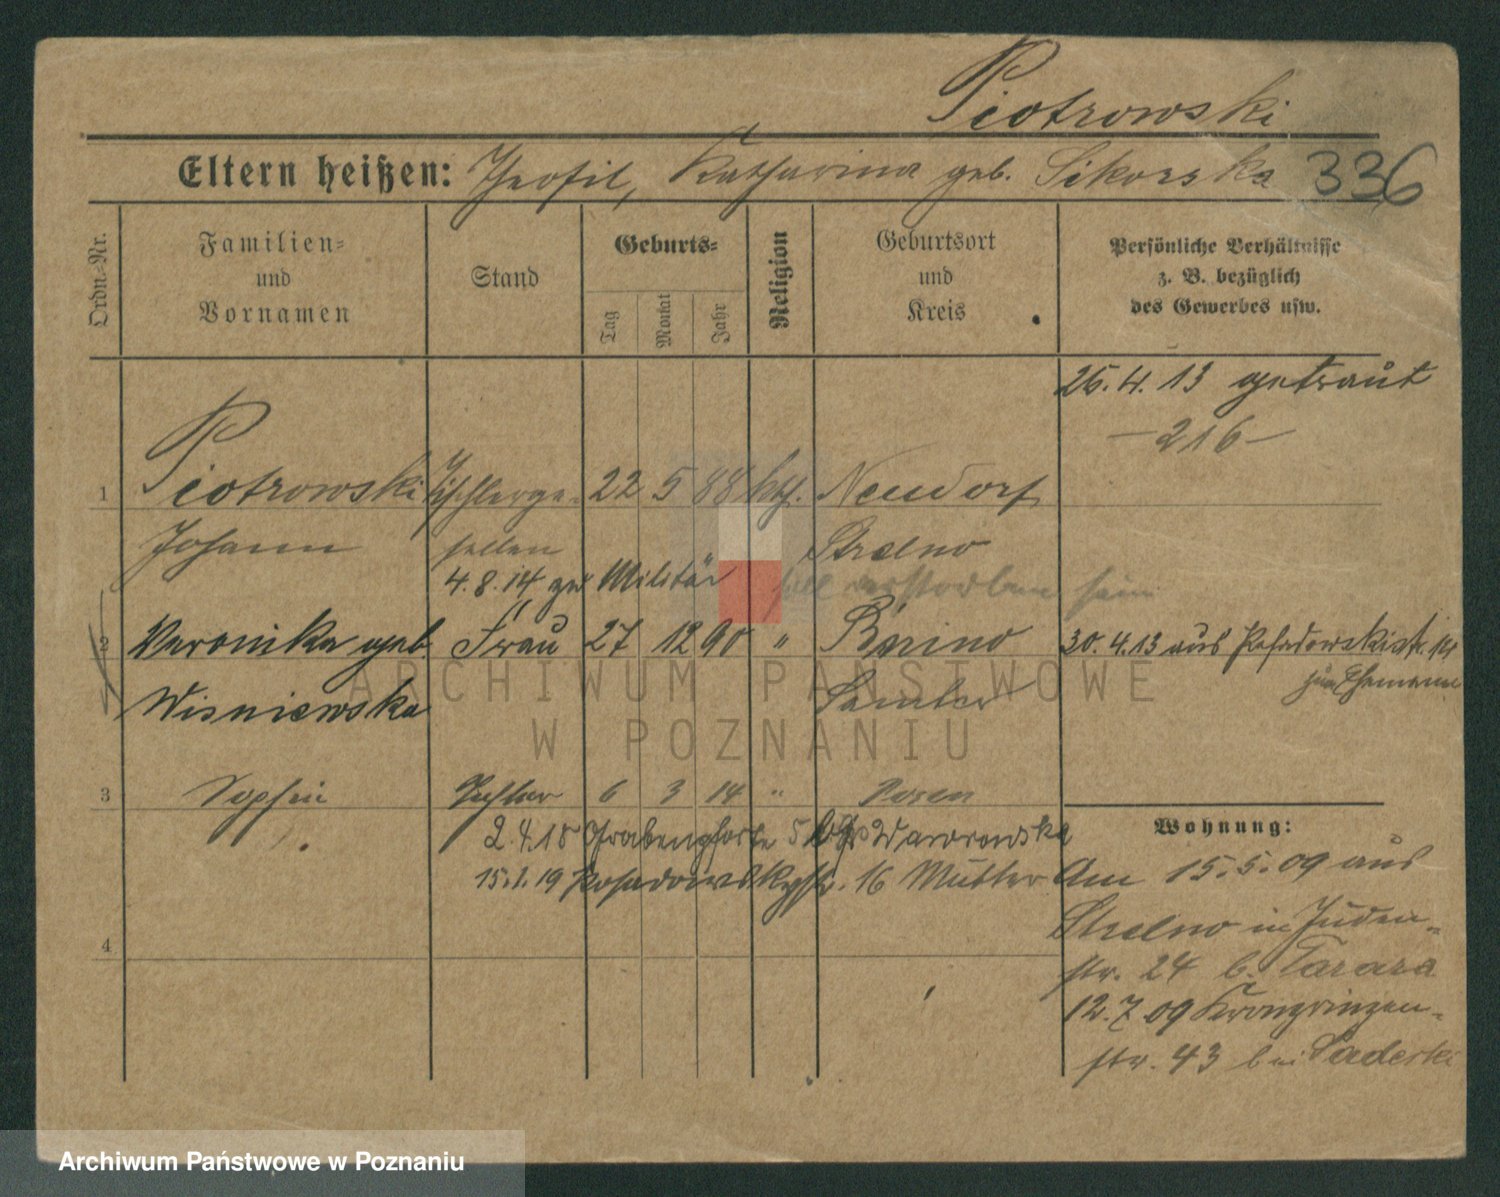 Piotrowski
Eltern heißen: Theofil, Katharina geb. Sikorska 336
Ordn.-Nr.
Familien- und Vornamen
Stand
Geburts-
Tag
Monat
Jahr
Religion
Geburtsort und Kreis
Persönliche Verhältnisse z. B. bezüglich des Gewerbes usw.
26.4.13 getraut
-216-
1 Piotrowski Tischlerge- 22 5 88 kth. Neudorf
Johann sellen Strelno
4.8.14 zum Militär soll verstorben sein
2 Veronika geb. Frau 27 12 90 " 30.4.13 aus Posadowskistr.
Wisniewska Samter zum Ehemann
3 Sophie Tochter 6 3 14 " Posen
2.4.18 Grabenpforte 5 Waworowska
15.1.19 Posadowskystr. 16 Mutter
4
Wohnung:
Am 15.5.09 aus
Strelno in Juden-
str. 24 b. Tarara
12.7.09 Kronprinzen-
str. 43 bei
ARCHIWUM PAŃSTWOWE
W POZNANIU
Archiwum Państwowe w Poznaniu